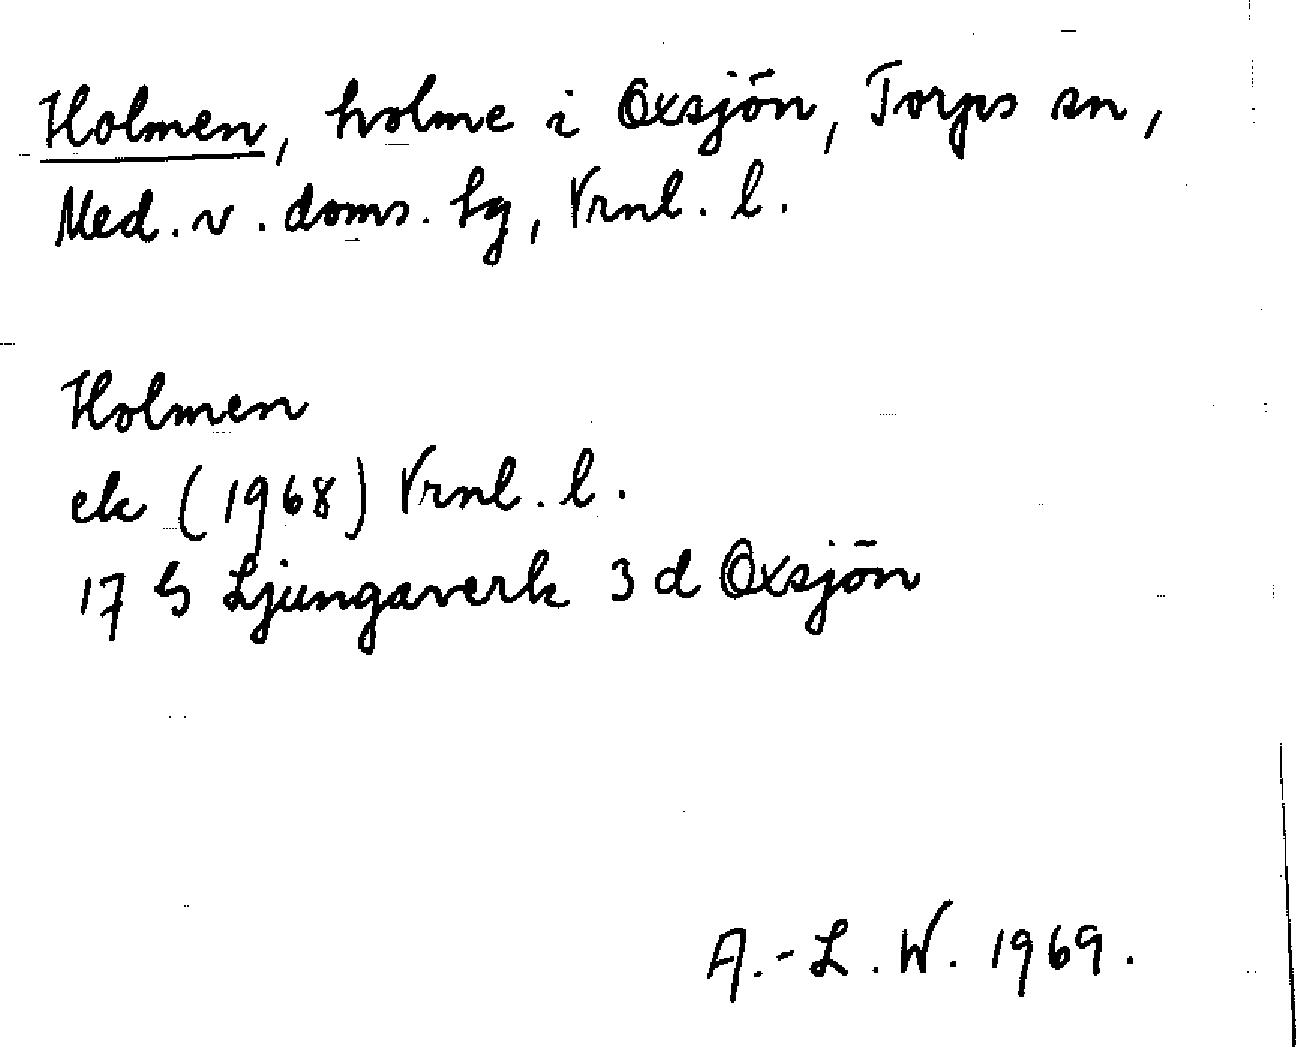 Holmen, holme i Oxsjön, Torps sn,
Med. v. doms. tg, Vrnl. l.
Holmen
ek (1968) Vrnl. l.
17 G Ljungaverk 3 d Oxsjön
A.-L. W. 1969.